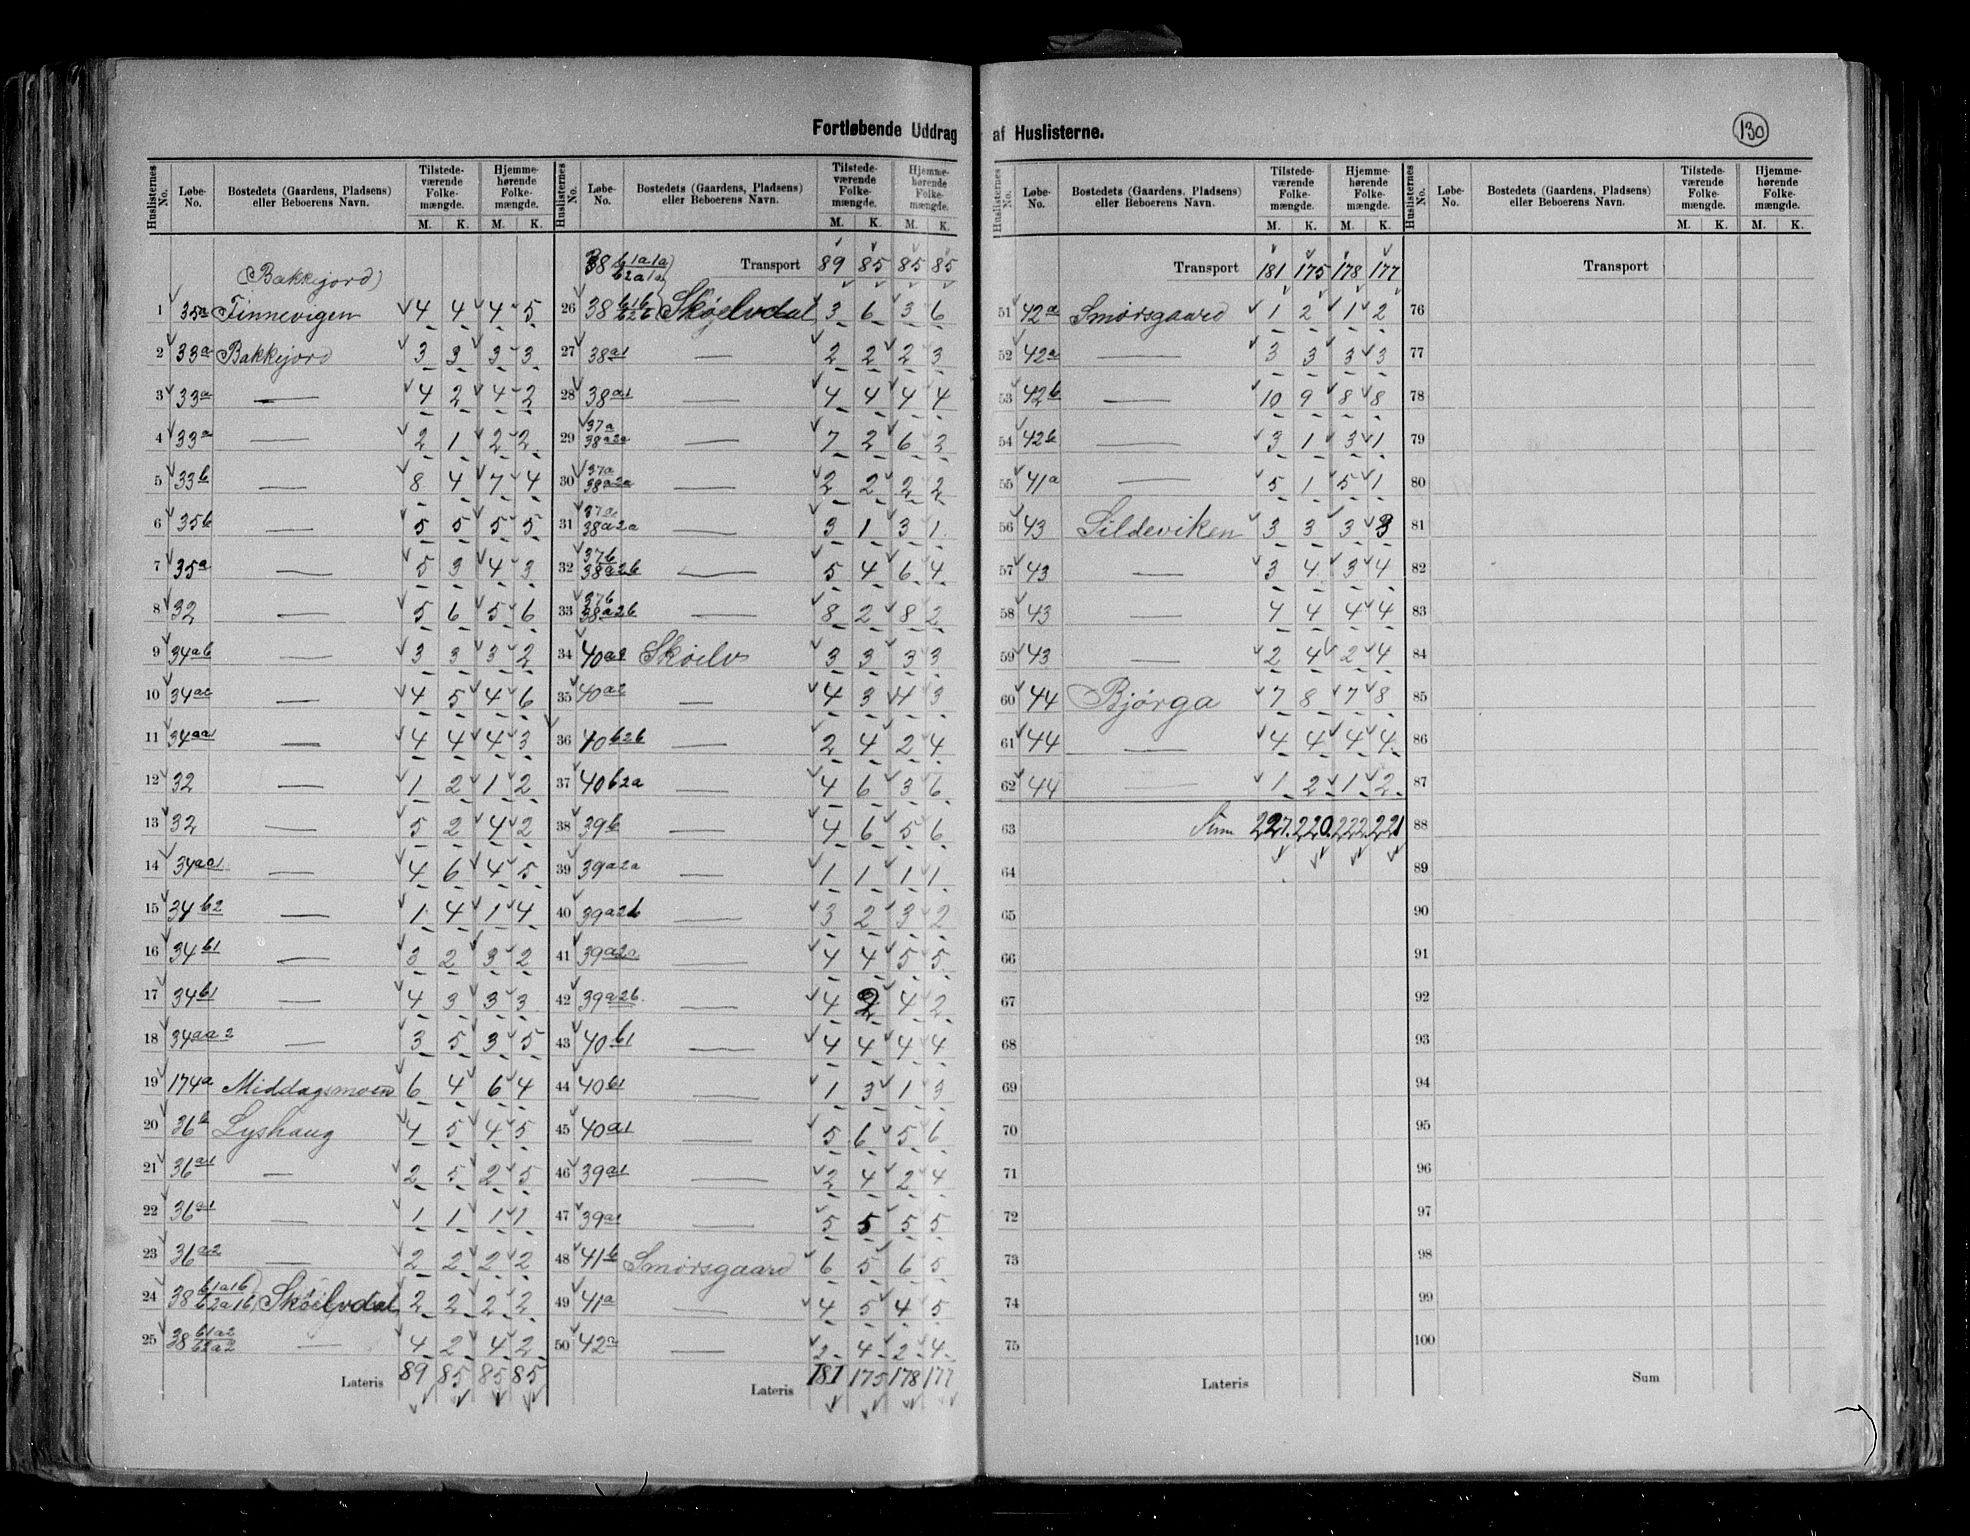 Fortløbende Uddrag af Huslisterne.
130
Huslisternes No. Løbe-No. Bostedets (Gaardens, Pladsens) eller Beboerens Navn. Tilstede-værende Folke-mængde. M. K. Hjemme-hørende Folke-mængde. M. K.
(Bakkejord)
1 35a Finnevigen 4 4 4 5
2 33a Bakkejord 3 3 3 3
3 33a — 4 2 4 2
4 33a — 2 1 2 2
5 33b — 8 4 7 4
6 35b — 5 5 5 5
7 35a — 5 3 4 3
8 32 — 5 6 5 6
9 34ab — 3 3 3 2
10 34aa — 4 5 4 6
11 34aa1 — 4 4 4 3
12 32 — 1 2 1 2
13 32 — 5 2 4 2
14 34aa1 — 4 6 4 5
15 34b2 — 1 4 1 4
16 34b1 — 3 2 3 2
17 34b1 — 4 3 3 3
18 34aa2 — 3 5 3 5
19 174a Middagsmoen 6 4 6 4
20 36b Lyshaug 4 5 4 5
21 36a1 — 2 5 2 5
22 36a1 — 1 1 1 1
23 36a2 — 2 2 2 2
24 38 b1a1b b2a1b Skøelvdal 2 2 2 2
25 38 b1a2 b2a2 — 4 2 4 2
Lateris 89 85 85 85
Huslisternes No. Løbe-No. Bostedets (Gaardens, Pladsens) eller Beboerens Navn. Tilstede-værende Folke-mængde. M. K. Hjemme-hørende Folke-mængde. M. K.
38 b1a1a b2a1a Transport 89 85 85 85
26 38 b1b b2b Skøelvdal 3 6 3 6
27 38a1 — 2 2 2 3
28 38a1 — 4 4 4 4
29 37a 38a2a — 7 2 6 3
30 37a 38a2a — 2 2 2 2
31 37a 38a2a — 3 1 3 1
32 37b 38a2b — 5 4 6 4
33 37b 38a2b — 8 2 8 2
34 40a2 Skøelv 3 3 3 3
35 40a2 4 3 4 3
36 40b2b — 2 4 2 4
37 40b2a — 4 6 3 6
38 39b — 4 6 5 6
39 39a2a — 1 1 1 1
40 39a2b — 3 2 3 2
41 39a2a — 4 4 5 5
42 39a2b — 4 2 4 2
43 40b1 — 4 4 4 4
44 40b1 — 1 3 1 3
45 40a1 — 5 6 5 6
46 39a1 — 2 4 2 4
47 39a1 — 5 5 5 5
48 41b Smørsgaard 6 5 6 5
49 41a — 4 5 4 5
50 42a — 2 4 2 4
Lateris 181 175 178 177
Huslisternes No. Løbe-No. Bostedets (Gaardens, Pladsens) eller Beboerens Navn. Tilstede-værende Folke-mængde. M. K. Hjemme-hørende Folke-mængde. M. K.
Transport 181 175 178 177
51 42a Smørsgaard 1 2 1 2
52 42a — 3 3 3 3
53 42b — 10 9 8 8
54 42b — 3 1 3 1
55 41a — 5 1 5 1
56 43 Sildeviken 3 3 3 3
57 43 — 3 4 3 4
58 43 — 4 4 4 4
59 43 — 2 4 2 4
60 44 Bjørga 7 8 7 8
61 44 — 4 4 4 4
62 44 — 1 2 1 2
63 Sum 227. 220. 222. 221
64
65
66
67
68
69
70
71
72
73
74
75
Lateris
Huslisternes No. Løbe-No. Bostedets (Gaardens, Pladsens) eller Beboerens Navn. Tilstede-værende Folke-mængde. M. K. Hjemme-hørende Folke-mængde. M. K.
Transport
76
77
78
79
80
81
82
83
84
85
86
87
88
89
90
91
92
93
94
95
96
97
98
99
100
Sum